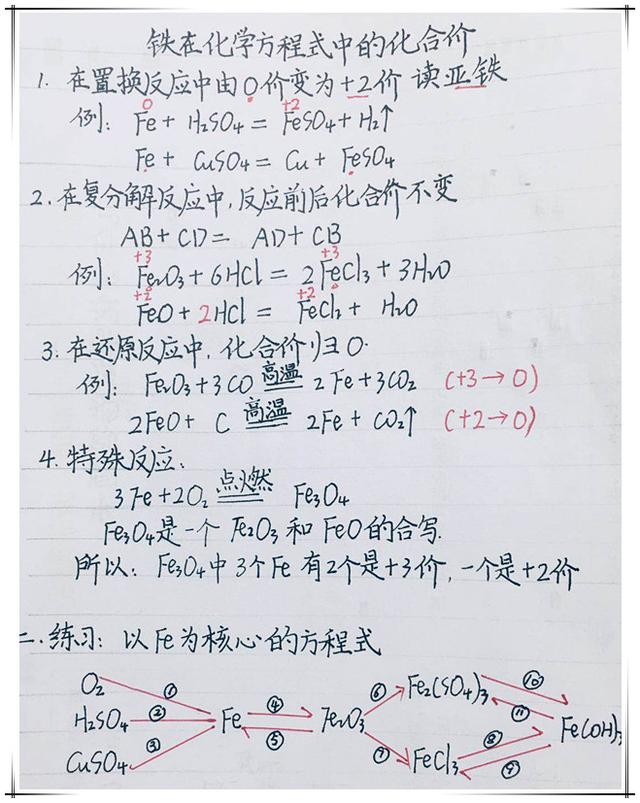 铁在化学方程式中的化合价
1. 在置换反应中由0价变为+2价 读亚铁
0 +2
例: Fe + H₂SO₄ = FeSO₄ + H₂↑
Fe + CuSO₄ = Cu + FeSO₄
2. 在复分解反应中, 反应前后化合价不变
AB + CD = AD + CB
+3 +3
例: Fe₂O₃ + 6HCl = 2FeCl₃ + 3H₂O
+2 +2
FeO + 2HCl = FeCl₂ + H₂O
3. 在还原反应中, 化合价归0.
例: Fe₂O₃ + 3CO 高温 2Fe + 3CO₂ (+3→0)
2FeO + C 高温 2Fe + CO₂↑ (+2→0)
4. 特殊反应:
3Fe + 2O₂ 点燃 Fe₃O₄
Fe₃O₄是一个 Fe₂O₃ 和 FeO 的合写.
所以: Fe₃O₄中 3个Fe 有2个是+3价, 一个是+2价
二. 练习: 以 Fe 为核心的方程式
O₂ ① ⑥ Fe₂(SO₄)₃ ⑩
H₂SO₄ ② Fe ④ ⑤ Fe₂O₃ ⑪ Fe(OH)₃
CuSO₄ ③ ⑦ FeCl₃ ⑧ ⑨